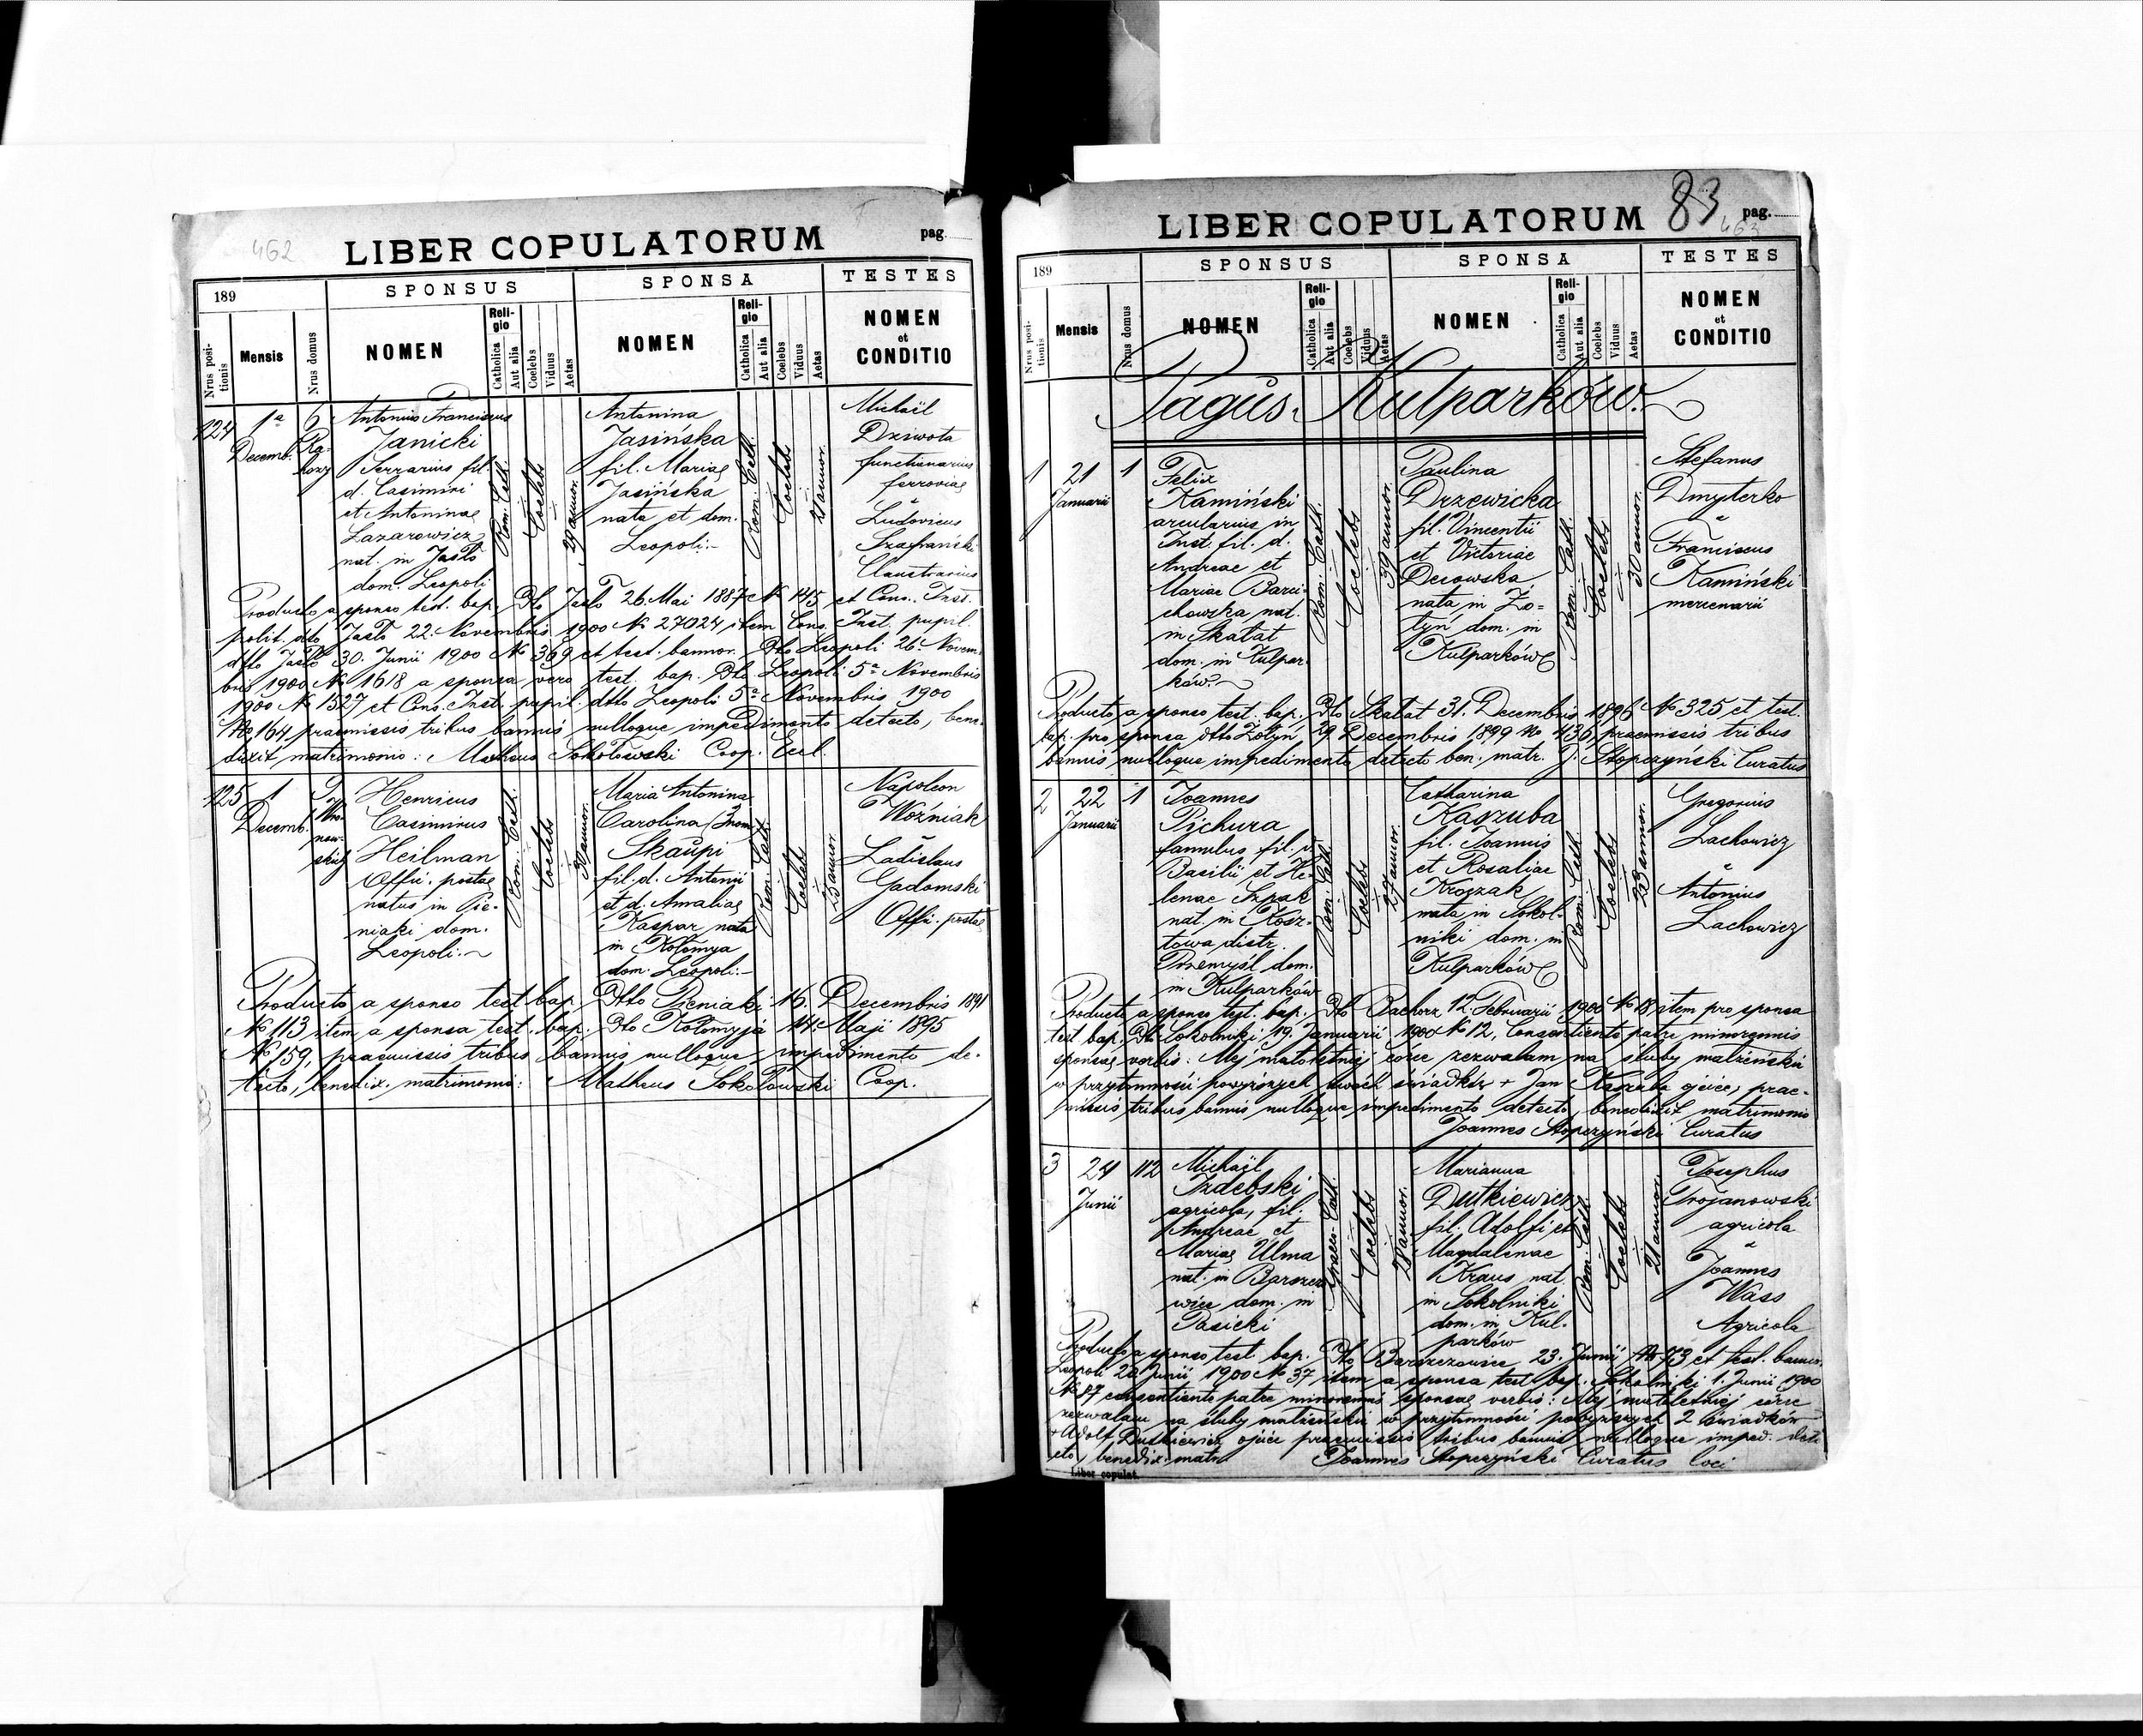 462
LIBER COPULATORUM
pag.
189
SPONSUS
SPONSA
TESTES
Nrus positionis
Mensis
Nrus domus
NOMEN
Religio
Catholica
Aut alia
Coelebs
Viduus
Aetas
NOMEN
Religio
Catholica
Aut alia
Coelebs
Viduus
Aetas
NOMEN
et
CONDITIO
124
1a
Decemb.
6
Antonius Franciscus
Janicki
Ferrarius fil.
d. Casimiri
et Antoninae
Lazarowicz
nat. in Jasło
dom. Leopoli
Rom. Cath.
Coelebs
29 annor.
Antonina
Jasińska
fil. Mariae
Jasińska
nata et dom.
Leopoli.
Rom. Cath.
Coelebs
21 annor.
Michaël
Dziwota
functionarius
ferroviae
Ludovicus
Szafrański
Claustrarius
Producto a sponso test. bap. Dto Jasło 26. Mai 1887 No 145, et Cons. Inst.
polit. dto Jasło 22. Novembris 1900 No 27024 item Cons. Inst. pupil.
dtto Jasło 30. Junii 1900 No 369 et test. bannor. Dto Leopoli 26. Novem-
bris 1900 No 1618 a sponsa vero test. bap. Dto Leopoli 5a Novembris
1900 No 1527 et Cons. Inst. pupil. dtto Leopoli 5a Novembris 1900
No 164 praemissis tribus bannis nulloque impedimento detecto, bene-
dixit matrimonio: Matheus Sokołowski Coop. Eccl.
125
1
Decemb.
Henricus
Casimirus
Heilman
Offic. postae
natus in Pie-
niaki dom.
Leopoli.
Rom. Cath.
Coelebs
Maria Antonina
Carolina (3 nom.)
Skaupi
fil. d. Antonii
et d. Amaliae
Kaspar nata
in Kołomya
dom. Leopoli.
Rom. Cath.
Coelebs
23 annor.
Napoleon
Woźniak
Ladislaus
Gadomski
Offic. postae
Producto a sponso test. bap. Dtto Pieniaki 16. Decembris 1891
No 113 item a sponsa test. bap. Dto Kołomyja 14. Maji 1895
No 159, praemissis tribus bannis nulloque impedimento de-
tecto, benedix. matrimonio: Matheus Sokołowski Coop.
83
LIBER COPULATORUM
pag.
463
189
SPONSUS
SPONSA
TESTES
Nrus positionis
Mensis
Nrus domus
NOMEN
Religio
Catholica
Aut alia
Coelebs
Viduus
Aetas
NOMEN
Religio
Catholica
Aut alia
Coelebs
Viduus
Aetas
NOMEN
et
CONDITIO
Pagus Kulparków.
1
21
Januarii
1
Felix
Kamiński
arcularius in
Inst. fil. d.
Andreae et
Mariae Barci-
chowska nat.
in Skałat
dom. in Kulpar-
ków.
Rom. Cath.
Coelebs
39 annor.
Paulina
Drzewicka
fil. Vincentii
et Victoriae
Decowska
nata in Żo-
łyń dom. in
Kulparków
Rom. Cath.
Coelebs
30 annor.
Stefanus
Dmyterko
Franciscus
Kamiński
mercenarii
Producto a sponso test. bap. Dto Skałat 31. Decembris 1896 No 325 et test.
bap. pro sponsa dtto Żołyn 29. Decembris 1899 No 436, praemissis tribus
bannis nulloque impedimento detecto ben. matr. J. Stopczyński Curatus
2
22
Januarii
1
Joannes
Pichura
famulus, fil.
Basilii et He-
lenae Szpak
nat. in Kosz-
towa distr.
Przemyśl dom.
in Kulparków
Rom. Cath.
Coelebs
27 annor.
Catharina
Kaszuba
fil. Joannis
et Rosaliae
Kroczak
nata in Sokol-
niki dom. in
Kulparków
Rom. Cath.
Coelebs
23 annor.
Gregorius
Lachowicz
Antonius
Lachowicz
Producto a sponso test. bap. Dto Bachorz 12. Februarii 1900 No 18 item pro sponsa
test bap. Dto Sokolniki 19. Januarii 1900 No 12, Consentiente patre minorennis
sponsae verbis: Mej małoletniej córce zezwalam na śluby małżeńskie
w przytomności powyższych dwóch świadków + Jan Kaszuba ojciec, prae-
missis tribus bannis nulloque impedimento detecto, benedixit matrimonio
Joannes Stopczyński Curatus
3
24
Junii
112
Michaël
Izdebski
agricola, fil.
Andreae et
Mariae Ulma
nat. in Barszczo-
wice dom. in
Pasieki
Graeco-Cath.
Coelebs
28 annor.
Marianna
Dutkiewicz
fil. Adolfi et
Magdalenae
Kraus nat.
in Sokolniki
dom. in Kul-
parków
Rom. Cath.
Coelebs
21 annor.
Josephus
Trojanowski
agricola
Joannes
Wass
Agricola
Producto a sponso test bap. Dto Barszczowice 23. Junii No 73 et test. bannor.
Leopoli 20 Junii 1900 No 37 item a sponsa test bap. Sokolniki 1. Junii 1900
No 87 consentiente patre minorennis sponsae verbis: Mej małoletniej córce
zezwalam na śluby małżeńskie w przytomności powyższych 2 świadków
+ Adolf Dutkiewicz ojciec praemissis tribus bannis nulloque imped. dete-
cto, benedix. matr. Joannes Stopczyński Curatus loci
Liber copulat.